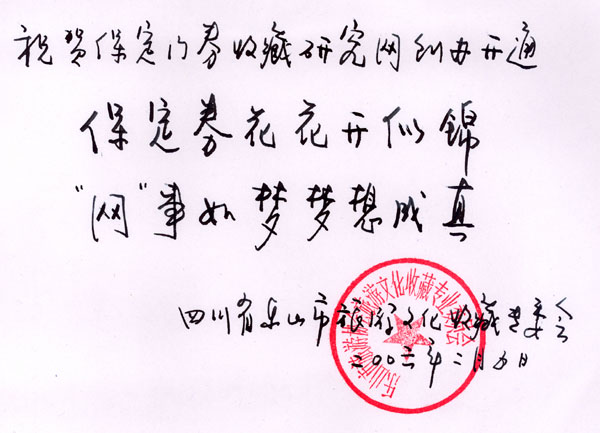 祝贺保定门券收藏研究网创办开通
保定券花花开似锦
"网"事如梦梦想成真
四川省乐山市旅游文化收藏专委会
二00六年二月 日
乐山市旅游 旅游文化收藏专业委员会